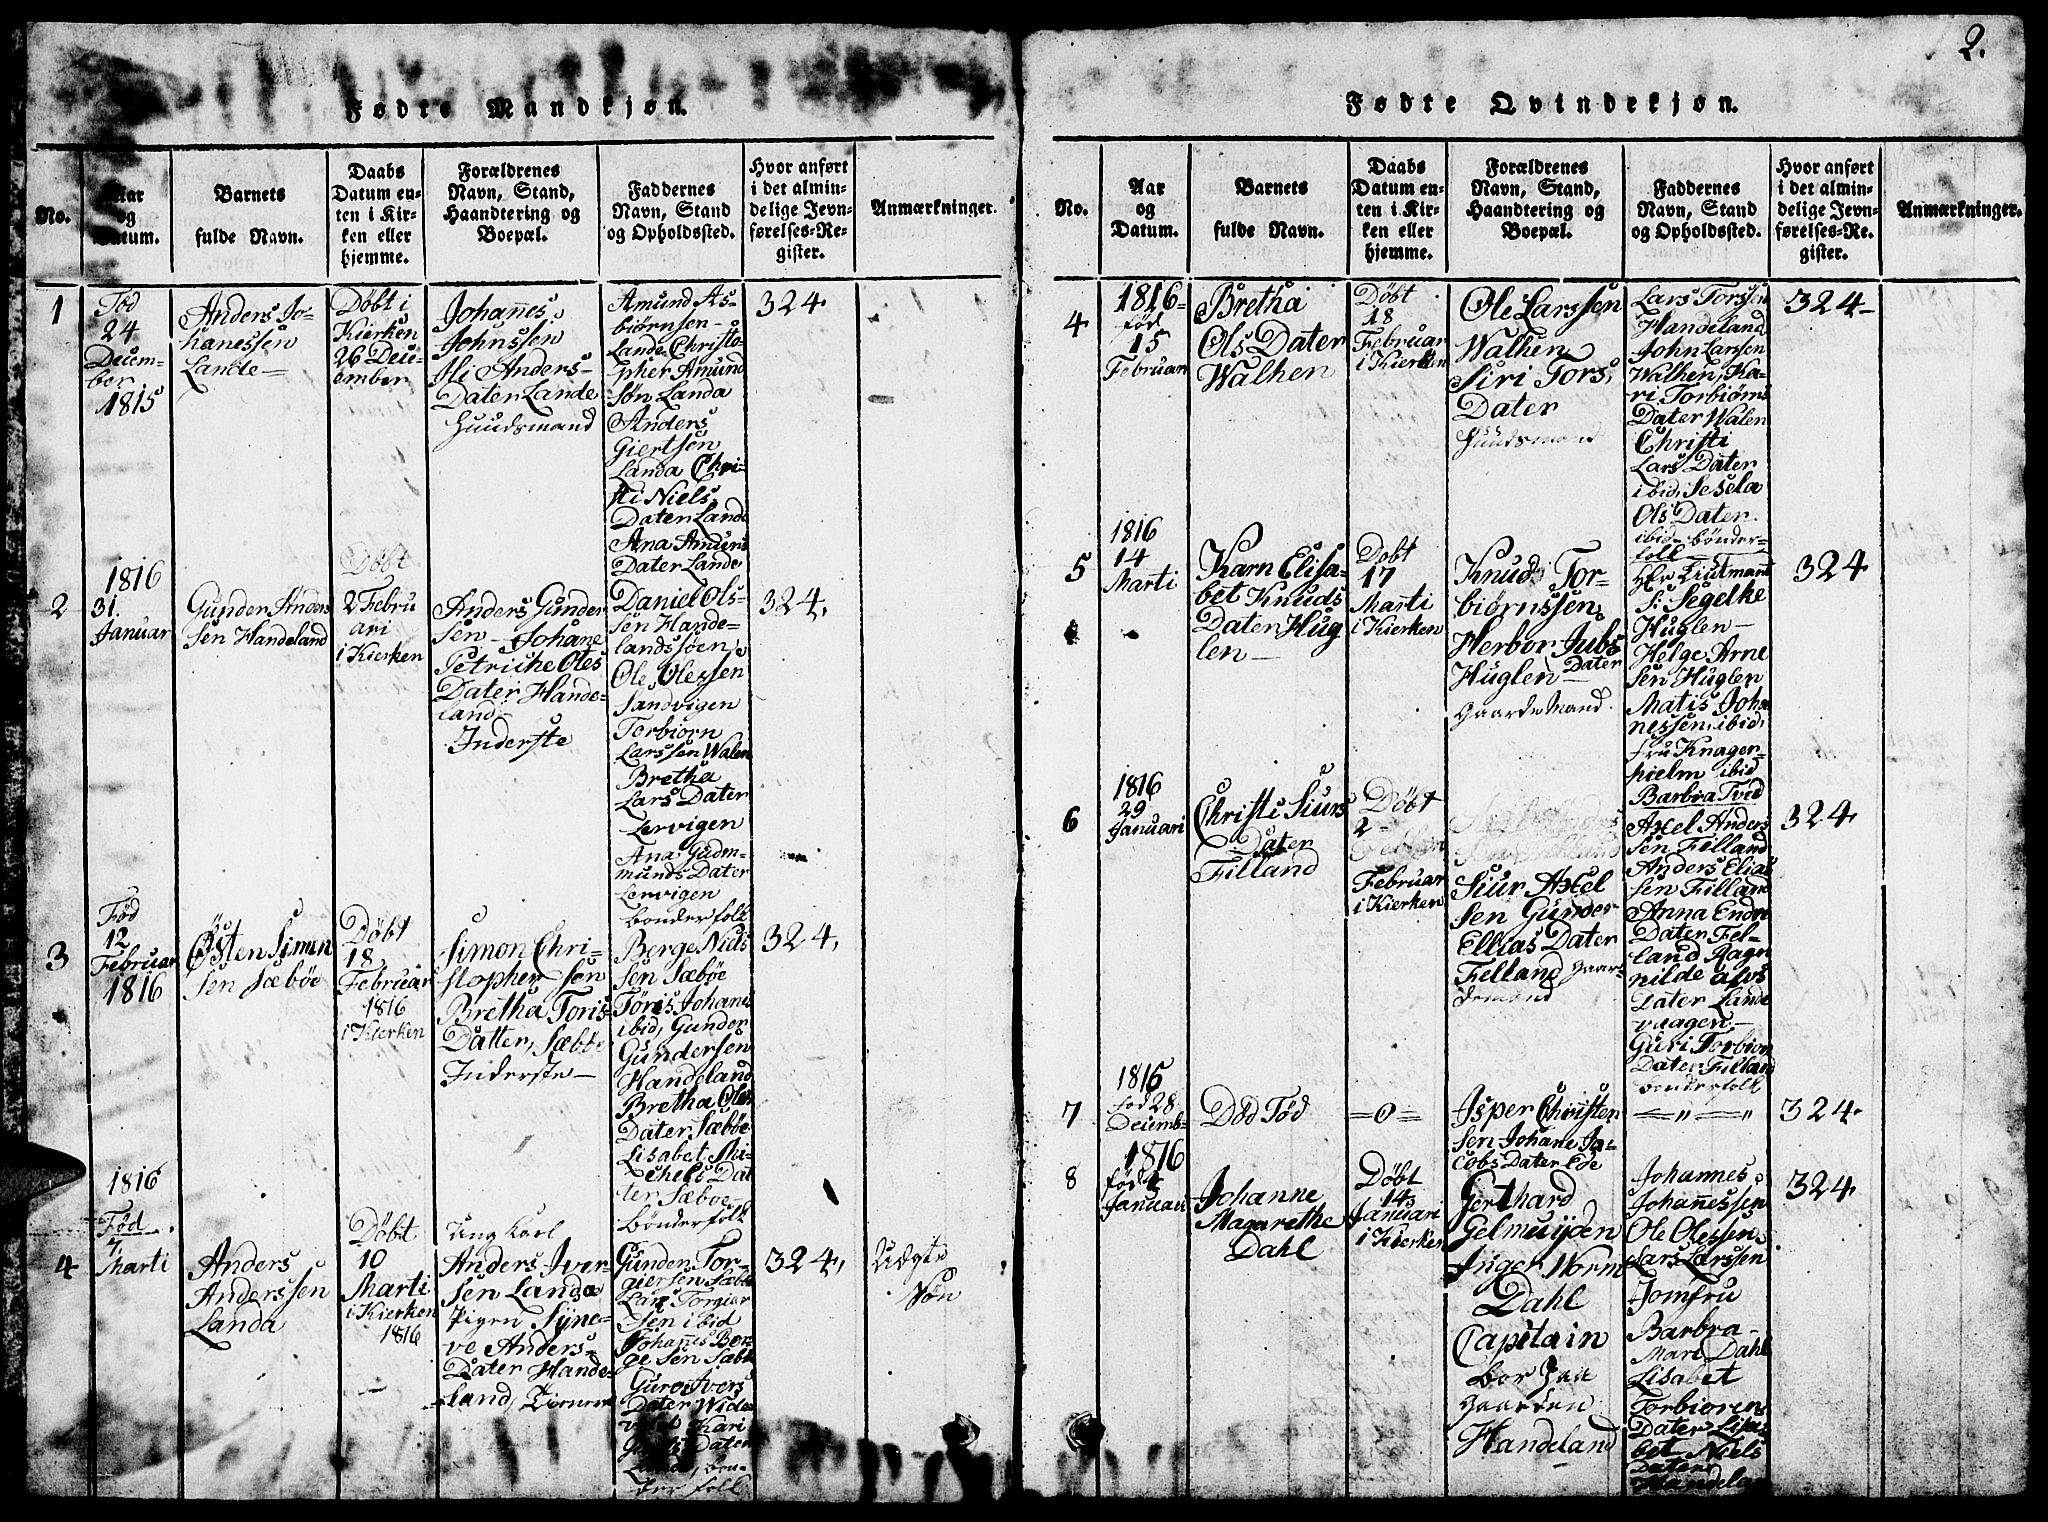 2.
Fødte Mandkjøn.
No.
Aar
og
Datum.
Barnets
fulde Navn.
Daabs
Datum en-
ten i Kir-
ken eller
hjemme.
Forældrenes
Navn, Stand,
Haandtering og
Boepæl.
Faddernes
Navn, Stand
og Opholdssted.
Hvor anført
i det almin-
delige Jevn-
førelses-Re-
gister.
Anmærkninger.
1
Fød
24
Decem-
ber
1815
Anders Jo-
hanessen
Lande
Døbt i
Kierken
26 Dec-
ember
Johañes
Johnssen
Anders-
Dater Lande
Huusmand
Amund As-
biørnsen
Lande Christo-
pher Amund
søn Landa
Anders
Giertsen
Landa Chri-
sti Niels
Dater Lande
Ana Anders
Dater Lande
324.
2
1816
31.
Januar
Gunder Anders
sen Handeland
Døbt
2 Febru
ari
i Kierken
Anders Gunder
sen Johane
Petriche Oles
Dater Hande-
land
Inderste
Daniel Ols-
sen Hande-
landssøen
Ole Olessen
Sandvigen
Torbiorn
Larssen Walen
Bretha
Lars Dater
Lervigen
Ana Gudm-
munds Dater
Lervigen
bonderfolk
324.
3
Fød
12
Februar
1816
Østen Simen
sen Sæbøe
Døbt
18
Februar
1816
i Kierken
Simon Chri-
stopher sen
Bretha Toris
Datter, Sæbøe
Inderste
Berge Niels
sen Sæbøe
Tøris Johanes
ibid, Gunder
Gundersen
Handeland
Bretha Oles
Dater Sæbøe
Lisabet Mi-
chels Dat
ter Sæboe
bönderfolk
324.
4
1816
Fød
7.
Marti
Anders
Anderssen
Landa
Døbt
10
Marti
i Kierken
1816
Ung Karl
Anders Iver-
sen Landa
Pigen Syne-
ve Anders-
Dater Hande-
land
Gunder Tor-
giersen Sæbøe
Lars Torgier
sen ibid
Johañes Bor-
ge sen Sæbøe
Guro Ivers
Dater Wide-
Kari
Dater
Landa, bon-
der folk
324.
Uægte
Søn
Fødte Qvindekjøn.
No.
Aar
og
Datum.
Barnets
fulde Navn.
Daabs
Datum en-
ten i Kir-
ken eller
hjemme.
Forældrenes
Navn, Stand,
Haandtering og
Boepæl.
Faddernes
Navn, Stand
og Opholdssted.
Hvor anført
i det almin-
delige Jevn-
førelses-Re-
gister.
Anmærkninger.
4
1816
fød
15
Februar
Bretha
Ols Dater
Walhen
Døbt
18
Februar
i Kierken
Ole Larssen
Walhen
Siri Tors
Dater
Huusmand
Lars Torssen
Handeland
John Larssen
Walhen, Ka-
ri Torbiørns
Dater Walen
Christi
Lars Dater
ibid, Sesela
Ols Dater
ibid- bønder-
folk
324
5
1816
14
Marti
Karn Elisa-
bet Knuds
Dater Hug
len
Døbt
17
Marti
i Kierken
Knud Tor-
biørnssen
Herbor Jubs
Dater
Huglen
Gaardemand
Hr Liutmant
S: Segelke
Huglen
Helge Arne
sen Huglen
Matis Joha
nessen ibid,
fru Knagen-
hielm ibid
Barbra Tvid
324
6
1816
29
Januari
Christi Siurs
Dater
Filland
Døbt
2
Februar
i Kierken
Siur Axel
sen Gunder
Ellias Dater
Felland Gaar-
demand
Axel Anders
sen Filland
Anders Elias
sen Filland
Anna Endre
Dater Fel-
land Ragn
hilde Alvs
Dater Lande
vaagen
Guri Torbiørn
Dater Filland
bonderfolk
324.
7
1815
fød 28
Decemb-
Død Fød
=0=
Jsper Christen
sen Johane Ja-
cobs Dater Ede
324.
8
1816
fød 4
Januari
Johanne
Magarethe
Dahl
Døbt
14
Januari
i Kierken
Gerthard
Gelmuijden
Inger Worm
Dahl
Capitain
boer paa
gaarden
Handeland
Johannes
Johañessen
Ole Olessen
Lars Larssen
Jomfru
Barbra
Mari Dahl
Lisabet
Torbioren
Dater Lisa
bet Niels
Dater
Handeland
324.